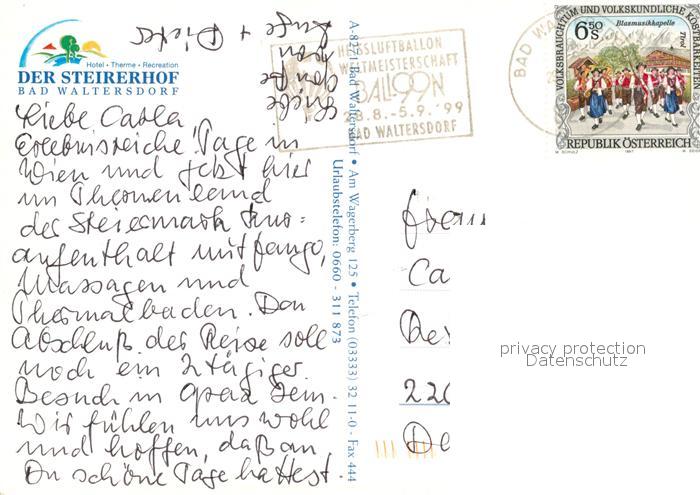 Hotel • Therme • Recreation
DER STEIRERHOF
BAD WALTERSDORF
Liebe Carla,
Erlebnisreiche Tage in
Wien und jetzt hier
im Thermenland
der Steiermark
aufenthalt mit Fango,
Massagen und
Thermalbaden. Den
Abschluß der Reise soll
noch ein 2 tägiger
Besuch in
Wir fühlen uns wohl
und hoffen, daß au
Du schöne Tage hattest.
Liebe
von
+ Dieter
A-8271 Bad Waltersdorf • Am Wagerberg 125 • Telefon (03333) 32 11-0 • Fax 444
Urlaubstelefon: 0660 - 311 873
HEISSLUFTBALLON
WELTMEISTERSCHAFT
BALL99N
28.8.-5.9.'99
BAD WALTERSDORF
BAD WA
VOLKSBRAUCHTUM UND VOLKSKUNDLICHE KOSTBARKEITEN
Blasmusikkapelle
Tirol
6.50 S
REPUBLIK ÖSTERREICH
M. SCHULZ 1997
Ca
220
De
privacy protection
Datenschutz